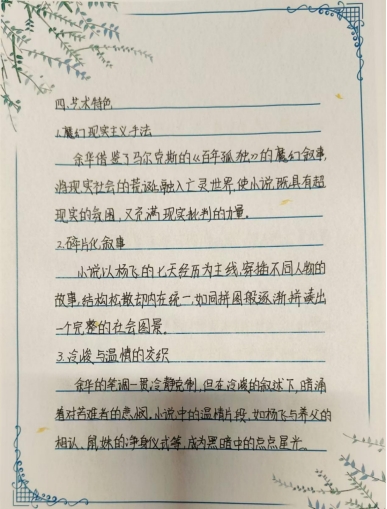 四.艺术特色
1.魔幻现实主义手法
余华借鉴了马尔克斯的《百年孤独》的魔幻叙事,
将现实社会的荒诞融入亡灵世界,使小说既具有超
现实的氛围,又充满现实批判的力量。
2.碎片化叙事
小说以杨飞的七天经历为主线,穿插不同人物的
故事,结构松散却内在统一,如同拼图般逐渐拼凑出
一个完整的社会图景。
3.冷峻与温情的交织
余华的笔调一贯冷静克制,但在冷峻的叙述下,暗涌
着对苦难者的悲悯。小说中的温情片段,如杨飞与养父的
相认、鼠妹的净身仪式等,成为黑暗中的点点星光。